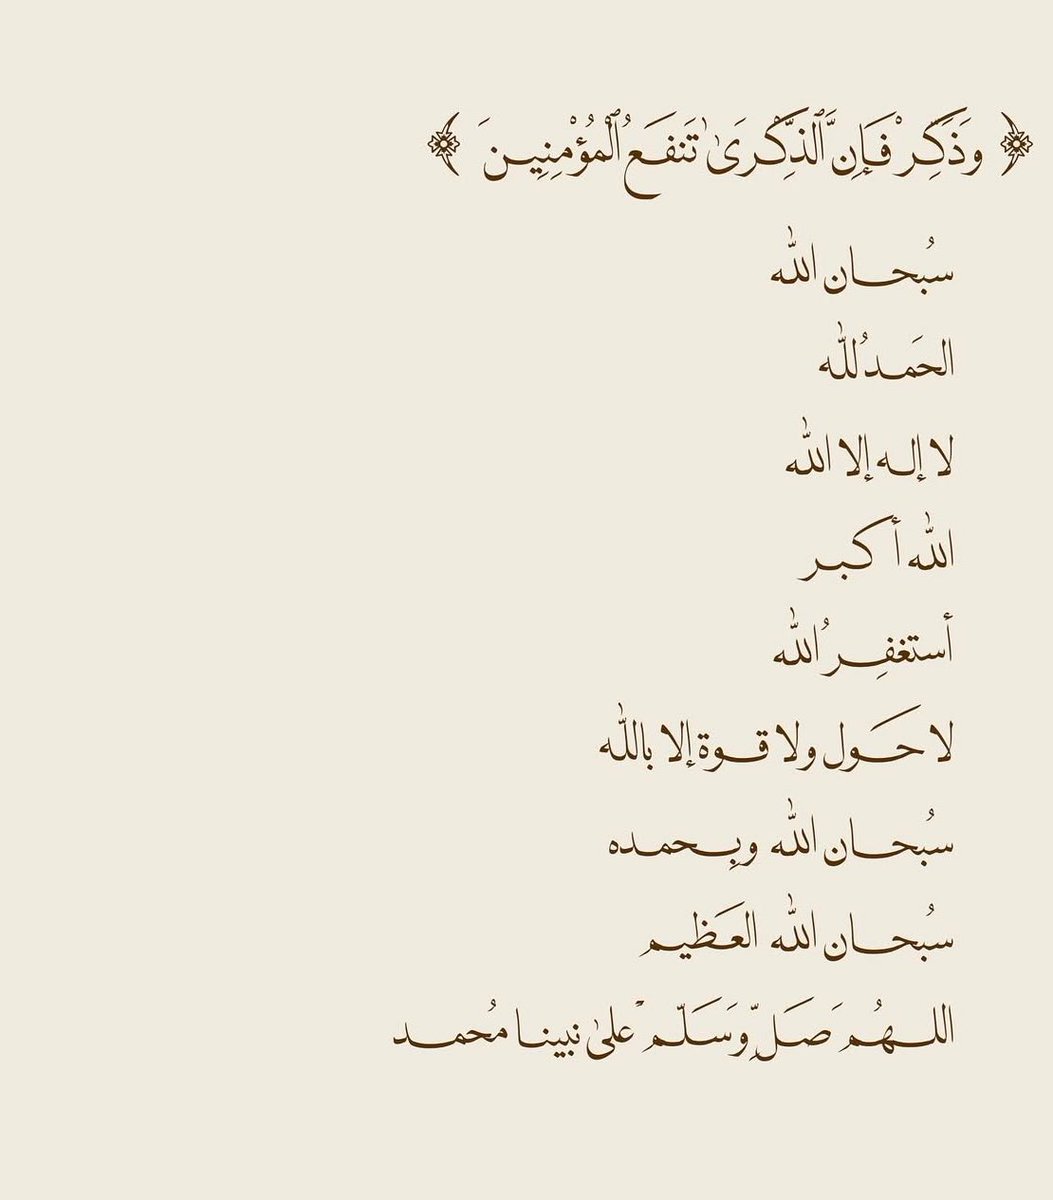 ﴿ وَذَكِّرْ فَإِنَّ ٱلذِّكْرَىٰ تَنفَعُ ٱلْمُؤْمِنِينَ ﴾
سُبحان الله
الحَمدُ لله
لا إله إلا الله
الله أكبر
أستغفِرُ الله
لا حَول ولا قوة إلا بالله
سُبحان الله وبِحمده
سُبحان الله العَظيم
اللهُم صَلِّ وَسَلّم على نبينا مُحمد